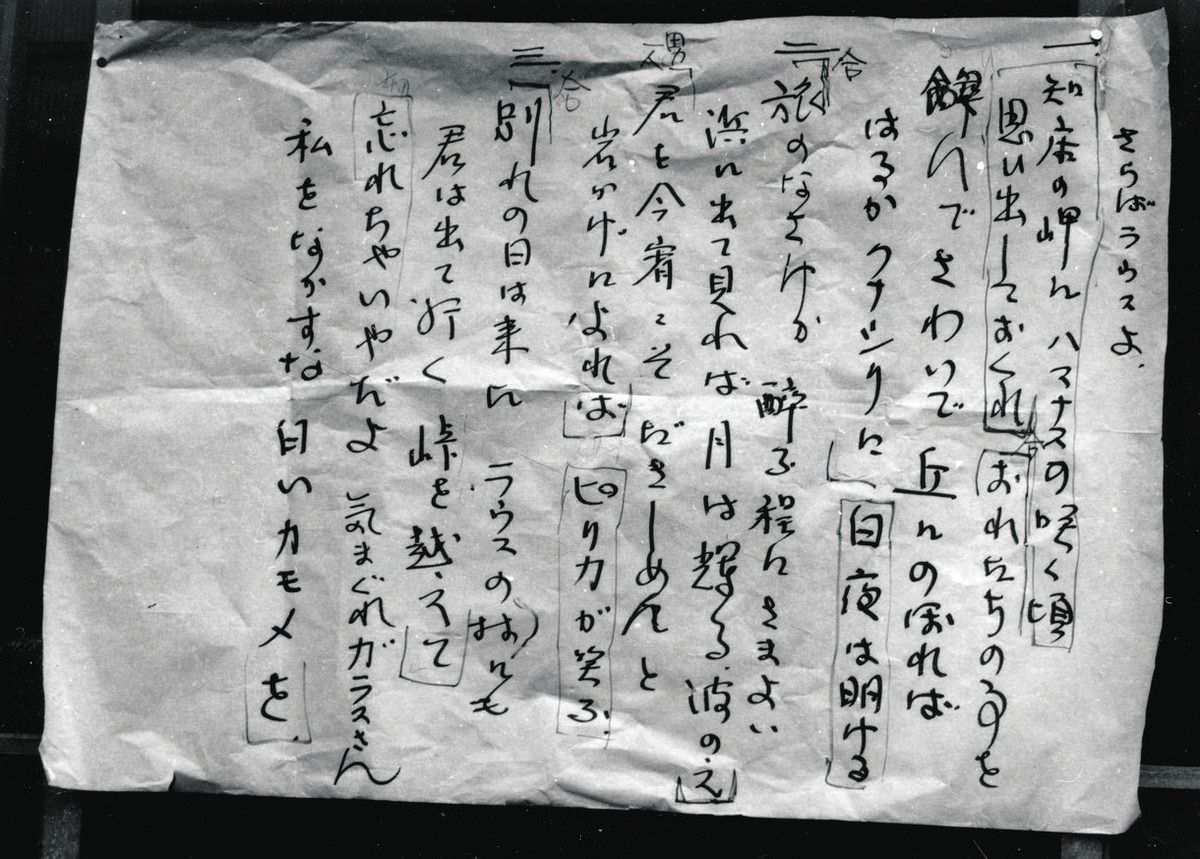 さらばラウスよ
一 知床の岬に ハマナスの咲く頃
思い出しておくれ おれたちの事を
飲んでさわいで 丘にのぼれば
はるか クナシリに 白夜は明ける
合
二 旅のなさけか 酔ふ程に さまよい
浜に出て見れば 月は輝る 波のえ
男 君を今宵こそ だきしめんと
岩かげによれば ピリカが笑ふ
合
三 別れの日は来た ラウスの村にも
君は出て行く 峠を越えて
忘れちゃいやだよ 気まぐれガラスさん
私をなかすな 白いカモメを